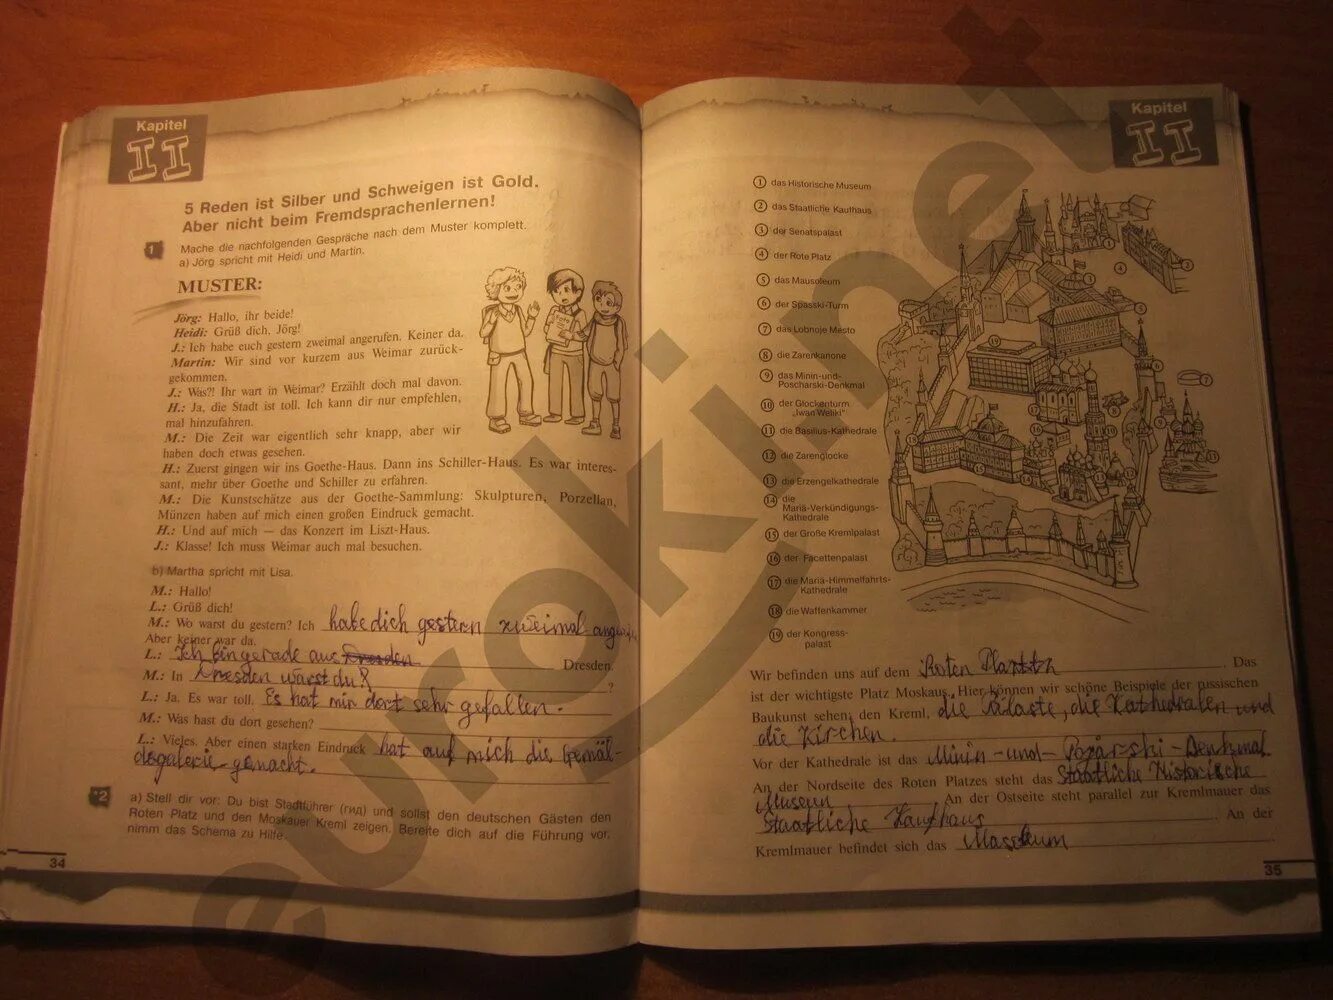 Kapitel
II
5 Reden ist Silber und Schweigen ist Gold.
Aber nicht beim Fremdsprachenlernen!
1
Mache die nachfolgenden Gespräche nach dem Muster komplett.
a) Jörg spricht mit Heidi und Martin.
MUSTER:
Jörg: Hallo, ihr beide!
Heidi: Grüß dich, Jörg!
J.: Ich habe euch gestern zweimal angerufen. Keiner da.
Martin: Wir sind vor kurzem aus Weimar zurück-
gekommen.
J.: Was?! Ihr wart in Weimar? Erzählt doch mal davon.
H.: Ja, die Stadt ist toll. Ich kann dir nur empfehlen,
mal hinzufahren.
M.: Die Zeit war eigentlich sehr knapp, aber wir
haben doch etwas gesehen.
H.: Zuerst gingen wir ins Goethe-Haus. Dann ins Schiller-Haus. Es war interes-
sant, mehr über Goethe und Schiller zu erfahren.
M.: Die Kunstschätze aus der Goethe-Sammlung: Skulpturen, Porzellan,
Münzen haben auf mich einen großen Eindruck gemacht.
H.: Und auf mich — das Konzert im Liszt-Haus.
J.: Klasse! Ich muss Weimar auch mal besuchen.
b) Martha spricht mit Lisa.
M.: Hallo!
L.: Grüß dich!
M.: Wo warst du gestern? Ich habe dich gestern zweimal
Aber keiner war da.
L.: Ich bin gerade aus Dresden Dresden.
M.: In Dresden warst du? ?
L.: Ja. Es war toll. Es hat mir dort sehr gefallen.
M.: Was hast du dort gesehen?
L.: Vieles. Aber einen starken Eindruck hat auf mich die Gemäl-
degalerie gemacht.
*2
a) Stell dir vor: Du bist Stadtführer (гид) und sollst den deutschen Gästen den
Roten Platz und den Moskauer Kreml zeigen. Bereite dich auf die Führung vor,
nimm das Schema zu Hilfe.
34
Kapitel
II
1 das Historische Museum
2 das Staatliche Kaufhaus
3 der Senatspalast
4 der Rote Platz
5 das Mausoleum
6 der Spasski-Turm
7 das Lobnoje Mesto
8 die Zarenkanone
9 das Minin-und-
Poscharski-Denkmal
10 der Glockenturm
„Iwan Weliki“
11 die Basilius-Kathedrale
12 die Zarenglocke
13 die Erzengelkathedrale
14 die
Mariä-Verkündigungs-
Kathedrale
15 der Große Kremlpalast
16 der Facettenpalast
17 die Mariä-Himmelfahrts-
Kathedrale
18 die Waffenkammer
19 der Kongress-
palast
Wir befinden uns auf dem Roten . Das
ist der wichtigste Platz Moskaus. Hier können wir schöne Beispiele der russischen
Baukunst sehen: den Kreml, die Paläste, die Kathedralen und
die Kirchen.
Vor der Kathedrale ist das Minin-und- Denkmal
An der Nordseite des Roten Platzes steht das Staatliche Historische
Museum An der Ostseite steht parallel zur Kremlmauer das
Staatliche Kaufhaus . An der
Kremlmauer befindet sich das .
35
euroki.net